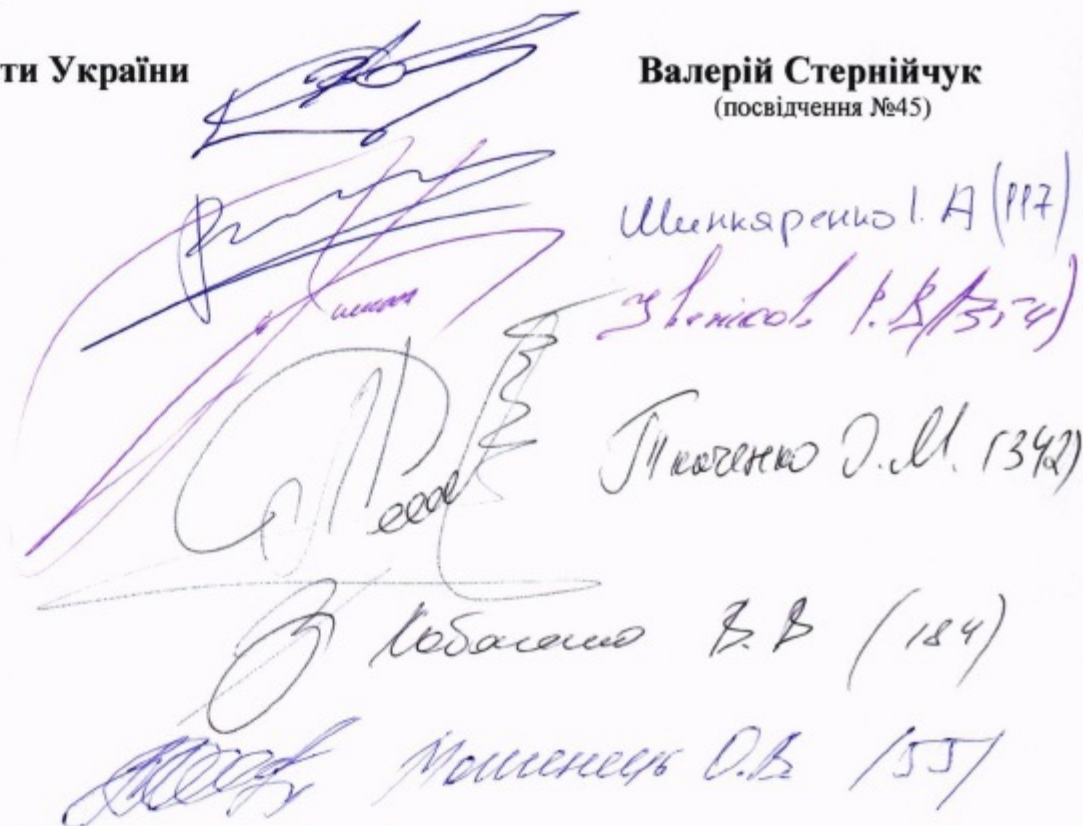 ти України
Валерій Стернійчук
(посвідчення №45)
Шинкаренко І. А (117)
Ткаченко О. М. (342)
В. В (184)
Мошенець О.В. (55)